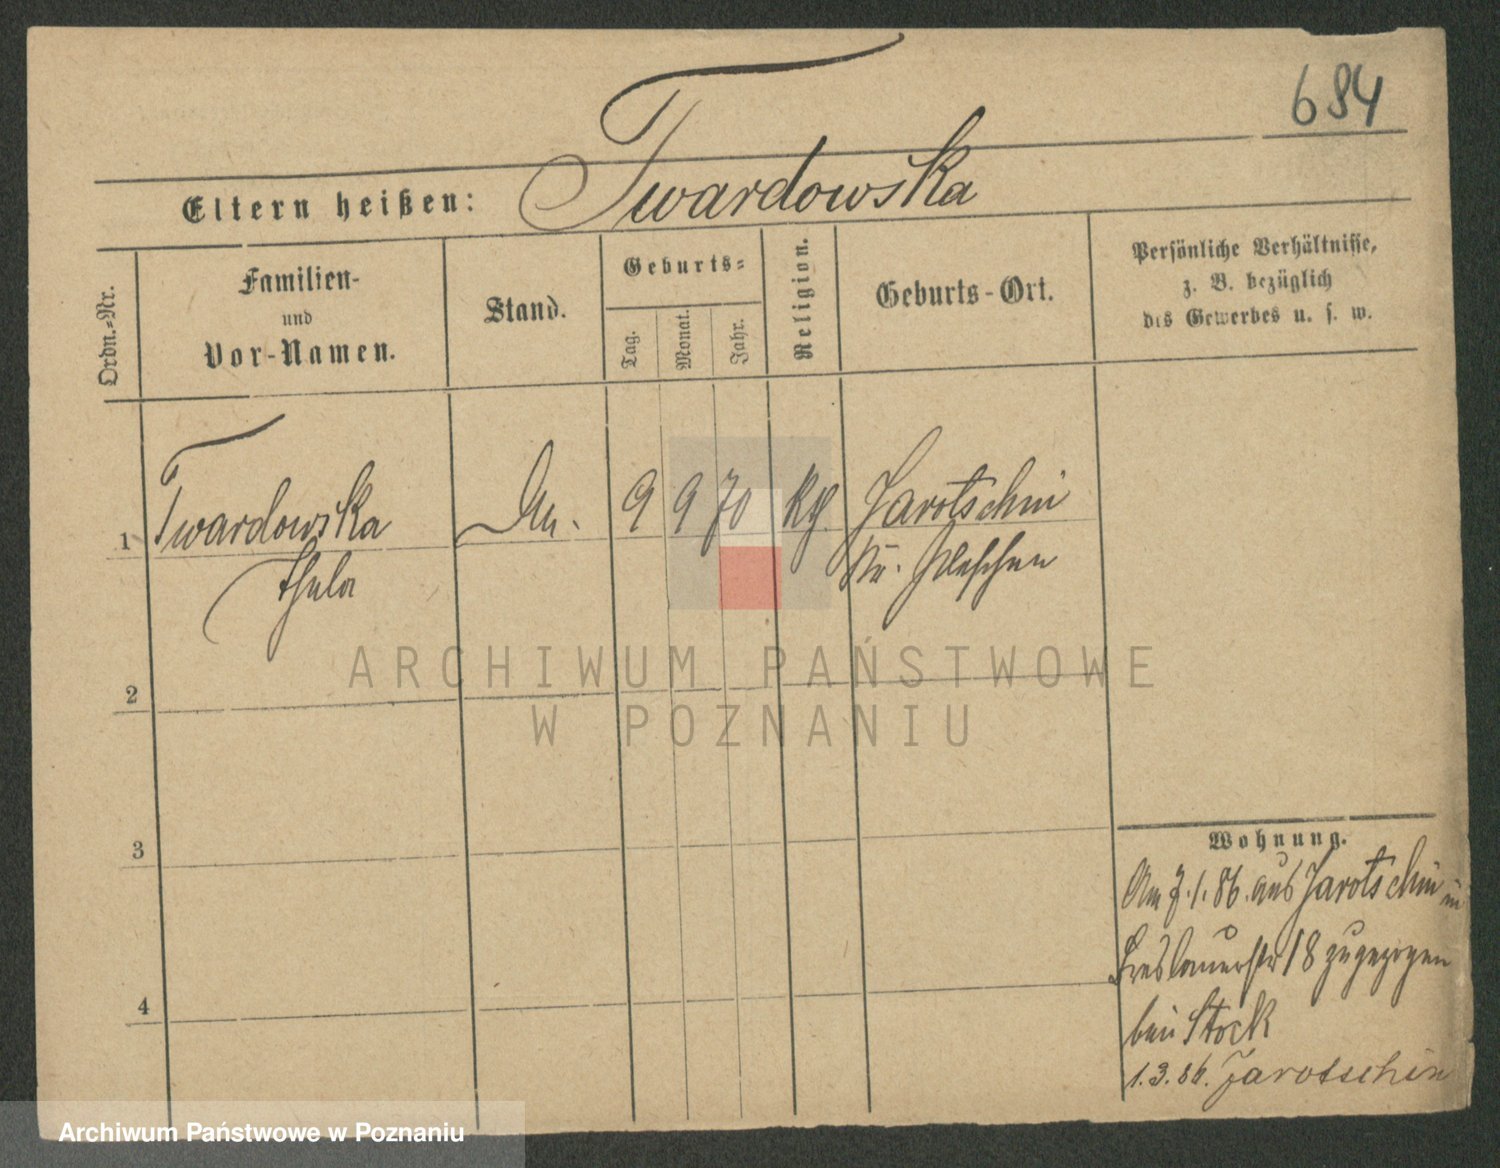 684
Twardowska
Eltern heißen:
Ordn.=Nr.
Familien-
und
Vor-Namen.
Stand.
Geburts=
Tag.
Monat.
Jahr.
Religion.
Geburts-Ort.
Persönliche Verhältnisse,
z. B. bezüglich
des Gewerbes u. s. w.
1 Twardowska 9 9 70 Jarotschin
Thela Kr. Pleschen
ARCHIWUM PAŃSTWOWE
W POZNANIU
2
3
4
Wohnung.
Am 7.1.86. aus Jarotschin in
Breslauerstr 18 zugezogen
bei Stock
1.3.86. Jarotschin
Archiwum Państwowe w Poznaniu